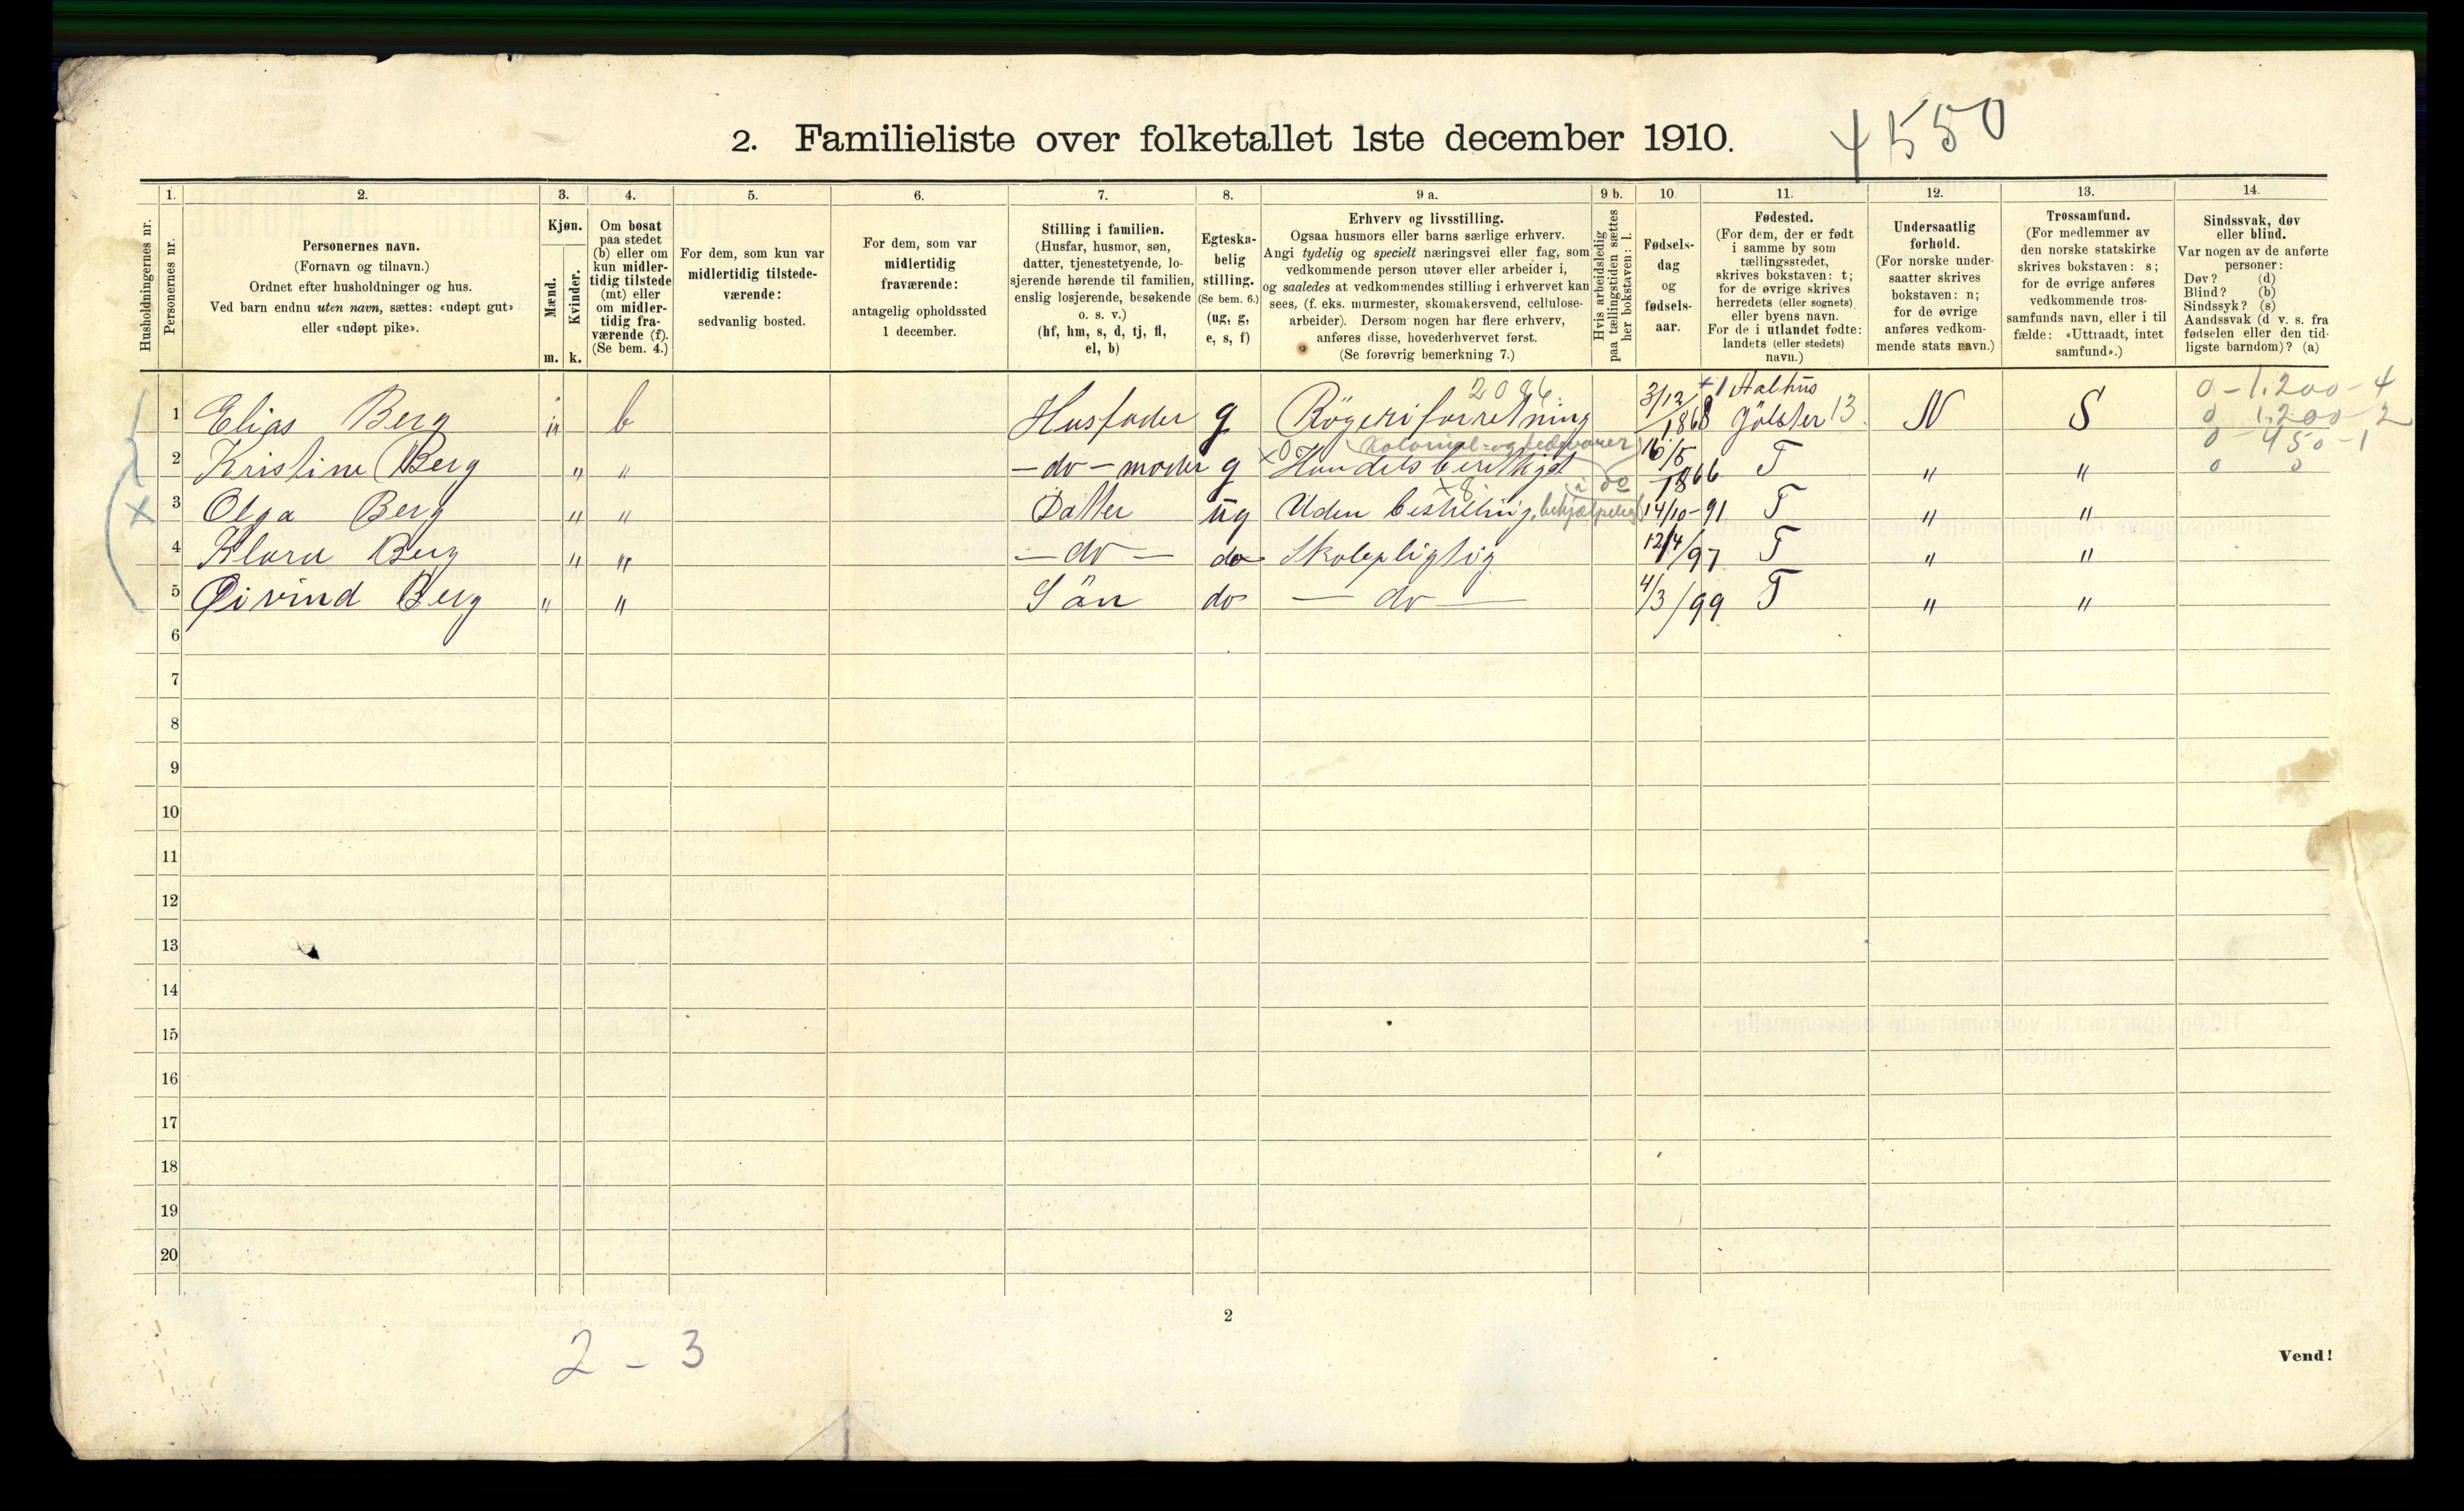 2. Familieliste over folketallet 1ste december 1910.
4550
Husholdningernes nr.
1.
Personernes nr.
2.
Personernes navn.
(Fornavn og tilnavn.)
Ordnet efter husholdninger og hus.
Ved barn endnu uten navn, sættes: «udøpt gut»
eller «udøpt pike».
3.
Kjøn.
Mænd.
Kvinder.
m. k.
4.
Om bosat
paa stedet
(b) eller om
kun midler-
tidig tilstede
(mt) eller
om midler-
tidig fra-
værende (f).
(Se bem. 4.)
5.
For dem, som kun var
midlertidig tilstede-
værende:
sedvanlig bosted.
6.
For dem, som var
midlertidig
fraværende:
antagelig opholdssted
1 december.
7.
Stilling i familien.
(Husfar, husmor, søn,
datter, tjenestetyende, lo-
sjerende hørende til familien,
enslig losjerende, besøkende
o. s. v.)
(hf, hm, s, d, tj, fl,
el, b)
8.
Egteska-
belig
stilling.
(Se bem. 6.)
(ug, g,
e, s, f)
9 a.
Erhverv og livsstilling.
Ogsaa husmors eller barns særlige erhverv.
Angi tydelig og specielt næringsvei eller fag, som
vedkommende person utøver eller arbeider i,
og saaledes at vedkommendes stilling i erhvervet kan
sees, (f. eks. murmester, skomakersvend, cellulose-
arbeider). Dersom nogen har flere erhverv,
anføres disse, hovederhvervet først.
(Se forøvrig bemerkning 7.)
9 b.
Hvis arbeidsledig
paa tællingstiden sættes
her bokstaven: l.
10.
Fødsels-
dag
og
fødsels-
aar.
11.
Fødested.
(For dem, der er født
i samme by som
tællingsstedet,
skrives bokstaven: t;
for de øvrige skrives
herredets (eller sognets)
eller byens navn.
For de i utlandet fødte:
landets (eller stedets)
navn.)
12.
Undersaatlig
forhold.
(For norske under-
saatter skrives
bokstaven: n;
for de øvrige
anføres vedkom-
mende stats navn.)
13.
Trossamfund.
(For medlemmer av
den norske statskirke
skrives bokstaven: s;
for de øvrige anføres
vedkommende tros-
samfunds navn, eller i til
fælde: «Uttraadt, intet
samfund».)
14.
Sindssvak, døv
eller blind.
Var nogen av de anførte
personer:
Døv? (d)
Blind? (b)
Sindssyk? (s)
Aandssvak (d v. s. fra
fødselen eller den tid-
ligste barndom)? (a)
2086 +1 Aalhus 0-1.200-4
1 Elias Berg " b Husfader g Rögeriforretning 3/12 1868 Jölster 13 N S 0 1.200-2
Kolonial- og fedevarer 0 450-1
2 Kristine Berg " " -do- moder g x0 Handelsberettiget 16/5 1866 T " " 0 0
x8 i do
3 Olga Berg " " Datter ug Uden bestilling, behjælpelig 14/10-91 T " "
4 Klara Berg " " -do- do Skolepligtig 12/4/97 T " "
5 Øivind Berg " " Sön do -do- 4/3/99 T " "
6
7
8
9
10
11
12
13
14
15
16
17
18
19
20
2
2-3
Vend!